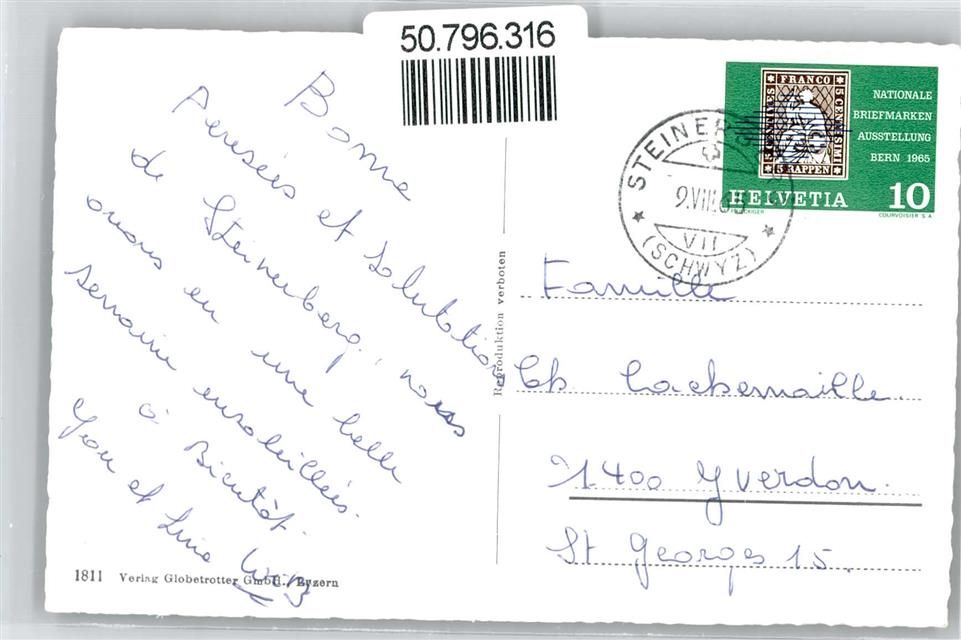 50.796.316
Bonne
Penseés et Salutation
de Steinerberg, nous
avons eu une belle
semaine ensoleilleés.
à Bientôt.
et Lina
1811 Verlag Globetrotter GmbH., Luzern
Reproduktion verboten
FRANCO
5 CENTIMES
5 CENTESIMI
5 RAPPEN
NATIONALE
BRIEFMARKEN
AUSSTELLUNG
BERN 1965
HELVETIA 10
COURVOISIER S.A.
STEINER
9.VIII.65
VII
(SCHWYZ)
Famille
Ch. Cackernaille.
1400 Yverdon.
St Georges 15.